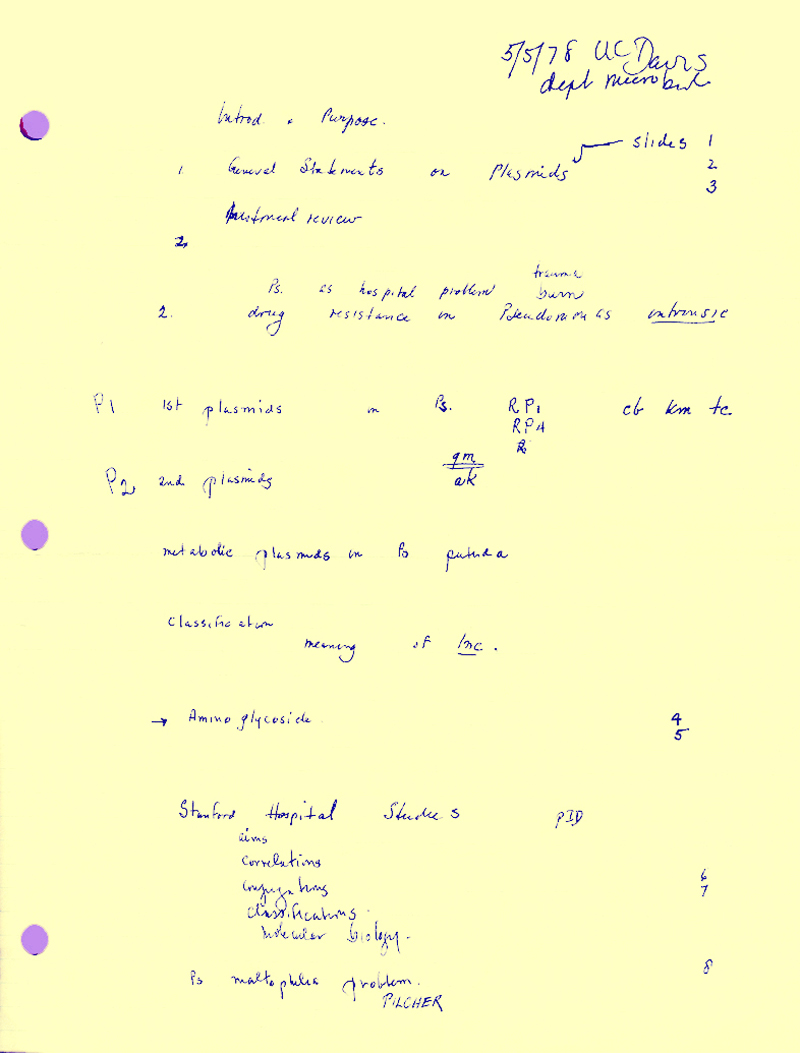 5/5/78 UC Davis
dept microbiol
Introd. & Purpose.
slides 1
1. General Statements on Plasmids 2
3
review
2.
trauma
Ps. as hospital problem burn
2. drug resistance in Pseudomonas intrinsic
P1 1st plasmids in Ps. RP1 cb km tc
RP4
R
gm
P2 2nd plasmids ak
metabolic plasmids in Ps putida
Classification
meaning of Inc.
→ Aminoglycoside 4
5
Stanford Hospital Studies PID
aims
correlations
conjugations 6
7
classifications.
molecular biology.
Ps maltophilia problem. 8
PILCHER